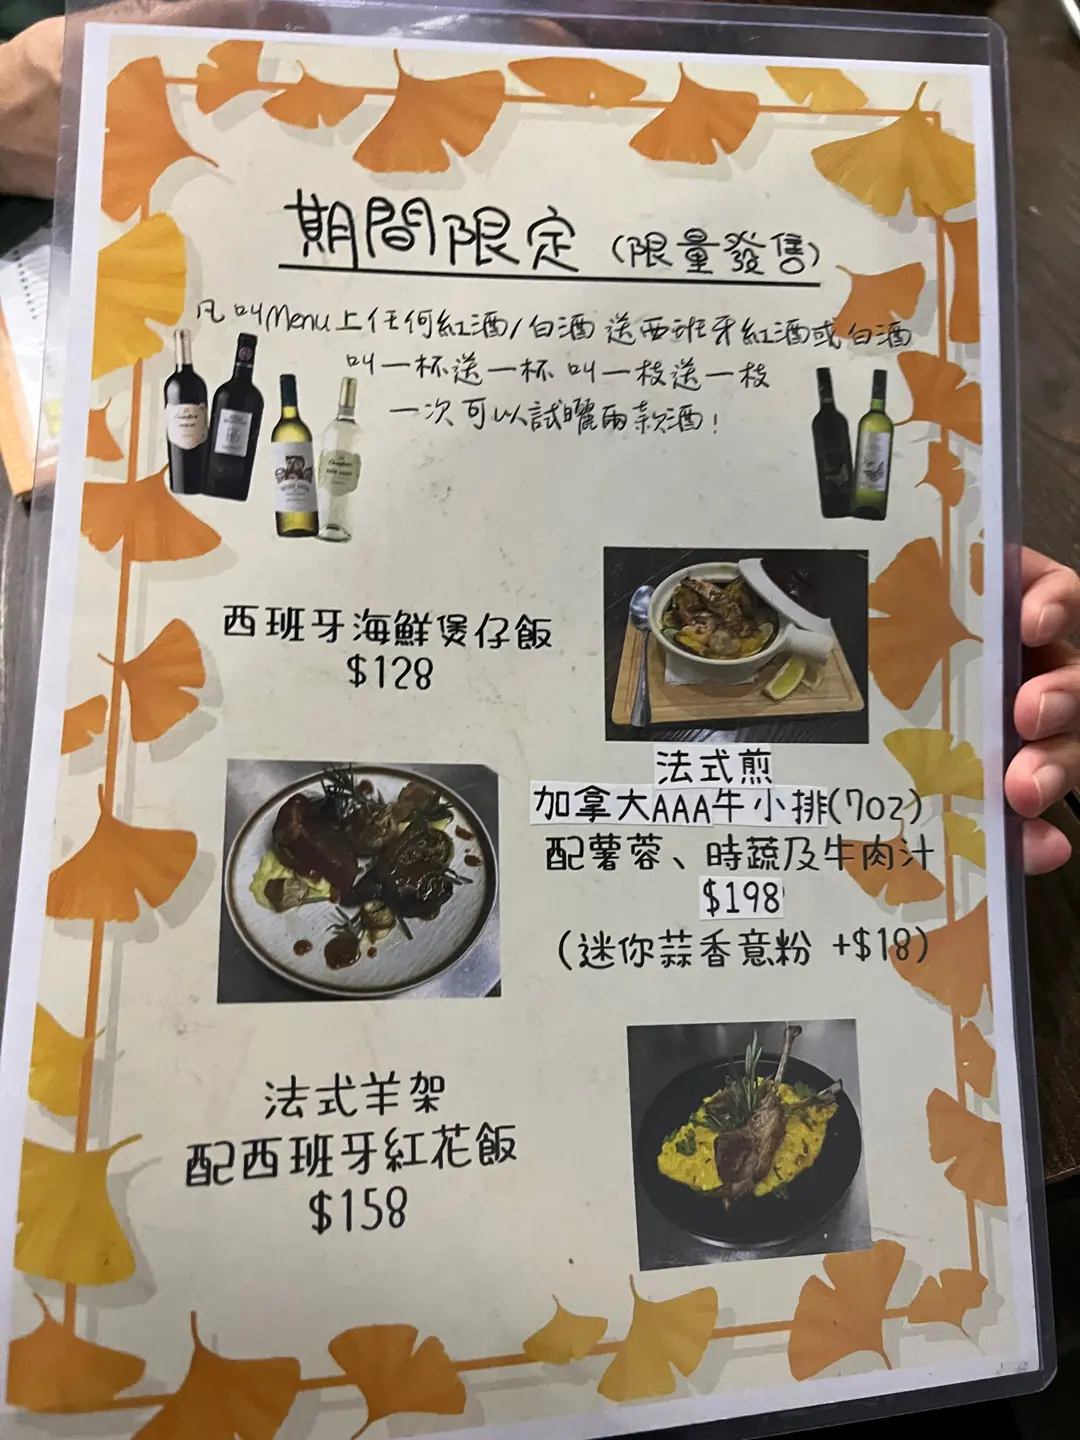 期間限定 (限量發售)
凡叫Menu上任何紅酒/白酒 送西班牙紅酒或白酒
叫一杯送一杯 叫一枝送一枝
一次可以試曬兩款酒!
西班牙海鮮煲仔飯
$128
法式煎
加拿大AAA牛小排(7oz)
配薯蓉、時蔬及牛肉汁
$198
(迷你蒜香意粉 +$18)
法式羊架
配西班牙紅花飯
$158